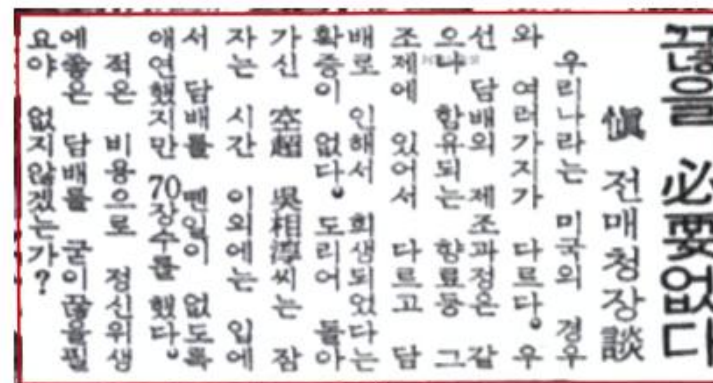 끊을 必要없다
愼 전매청장談
우리나라는 미국의 경우
와 여러가지가 다르다. 우
선 담배의 제조과정은 같
으나 함유되는 향료등 그
조제에 있어서 다르고 담
배로 인해서 희생되었다는
확증이 없다. 도리어 돌아
가신 空超 吳相淳씨는 잠
자는 시간 이외에는 입에
서 담배를 뗀일이 없도록
애연했지만 70장수를 했다.
적은 비용으로 정신위생
에좋은 담배를 굳이끊을필
요야 없지않겠는가?